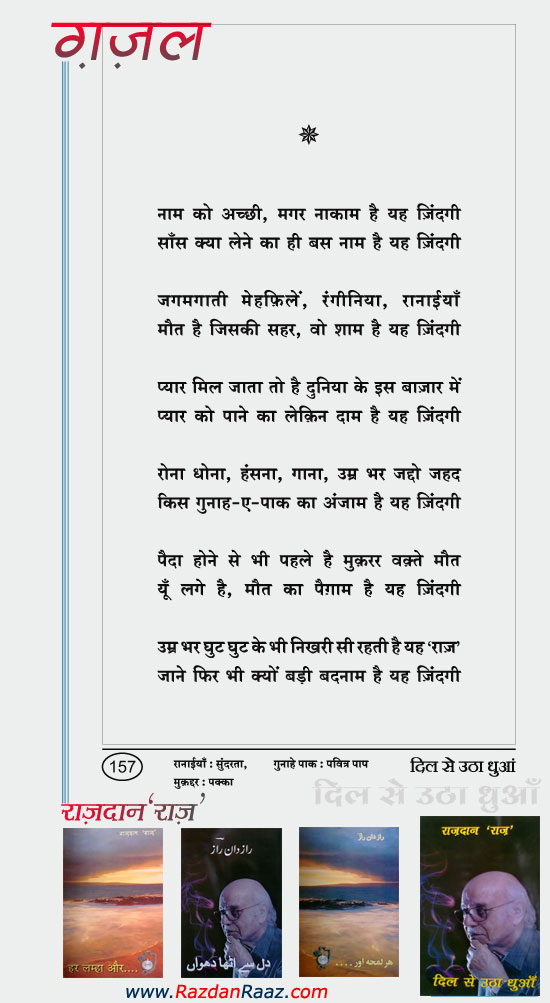 ग़ज़ल
नाम को अच्छी, मगर नाकाम है यह ज़िंदगी
साँस क्या लेने का ही बस नाम है यह ज़िंदगी
जगमगाती मेहफ़िलें, रंगीनिया, रानाईयाँ
मौत है जिसकी सहर, वो शाम है यह ज़िंदगी
प्यार मिल जाता तो है दुनिया के इस बाज़ार में
प्यार को पाने का लेक़िन दाम है यह ज़िंदगी
रोना धोना, हंसना, गाना, उम्र भर जद्दो जहद
किस गुनाह-ए-पाक का अंजाम है यह ज़िंदगी
पैदा होने से भी पहले है मुक़रर वक़्ते मौत
यूँ लगे है, मौत का पैग़ाम है यह ज़िंदगी
उम्र भर घुट घुट के भी निखरी सी रहती है यह ‘राज़’
जाने फिर भी क्यों बड़ी बदनाम है यह ज़िंदगी
157
रानाईयाँ : सुंदरता, गुनाहे पाक : पवित्र पाप
मुक़द्दर : पक्का
दिल से उठा धुआं
दिल से उठा धुआँ
राज़दान ‘राज़’
राज़दान ‘राज़’
हर लम्हा और....
رازدان راز
دل سے اٹھا دھواں
رازدان راز
ہر لمحہ اور....
राज़दान ‘राज़’
दिल से उठा धुआँ
www.RazdanRaaz.com